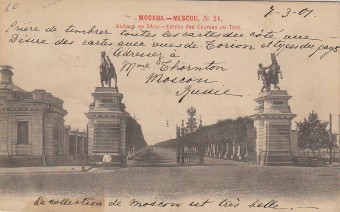 10
МОСКВА.—MOSCOU. № 24.
Въѣздъ на бѣга.—Entrée des Courses au Trot.
7-3-01.
Prière de timbrer toutes les cartes du côté vue
Désire des cartes avec vues de et types du pays
Adresser à
Mme Thornton
Moscou
Russie
La collection de Moscou est très belle.